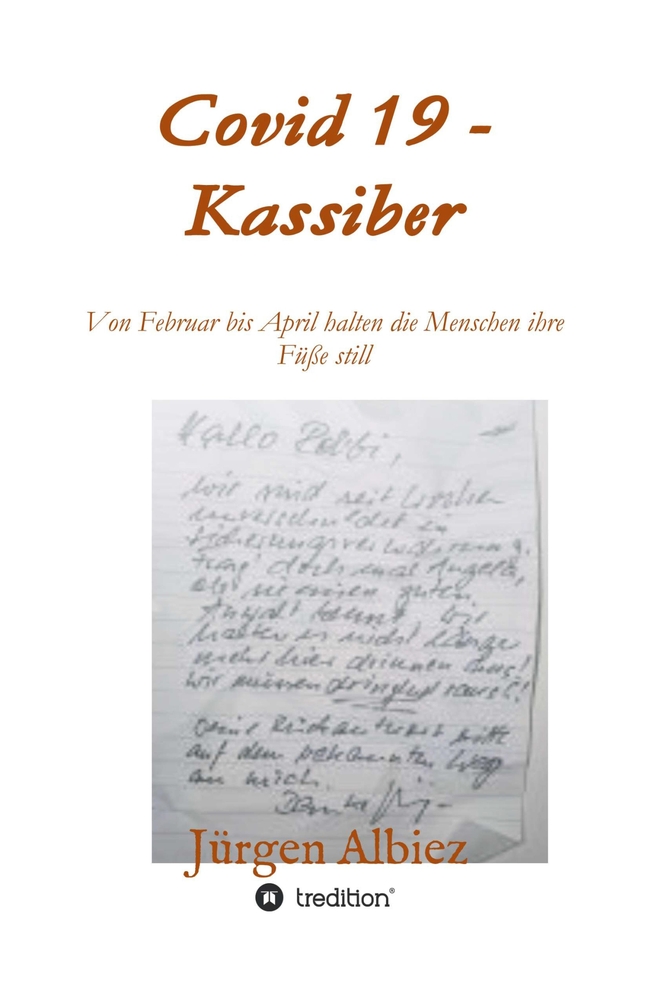 Covid 19 -
Kassiber
Von Februar bis April halten die Menschen ihre
Füße still
Hallo
wir sind seit Wochen
unverschuldet in
Sicherungsverwahrung.
Frag doch mal Angela,
ob sie einen guten
Anwalt kennt. Wir
halten es nicht länger
mehr hier drinnen aus!
Wir müssen dringend raus!!
Deine Rückantwort bitte
auf dem bekannten Weg
an mich.
Danke
Jürgen Albiez
tredition®